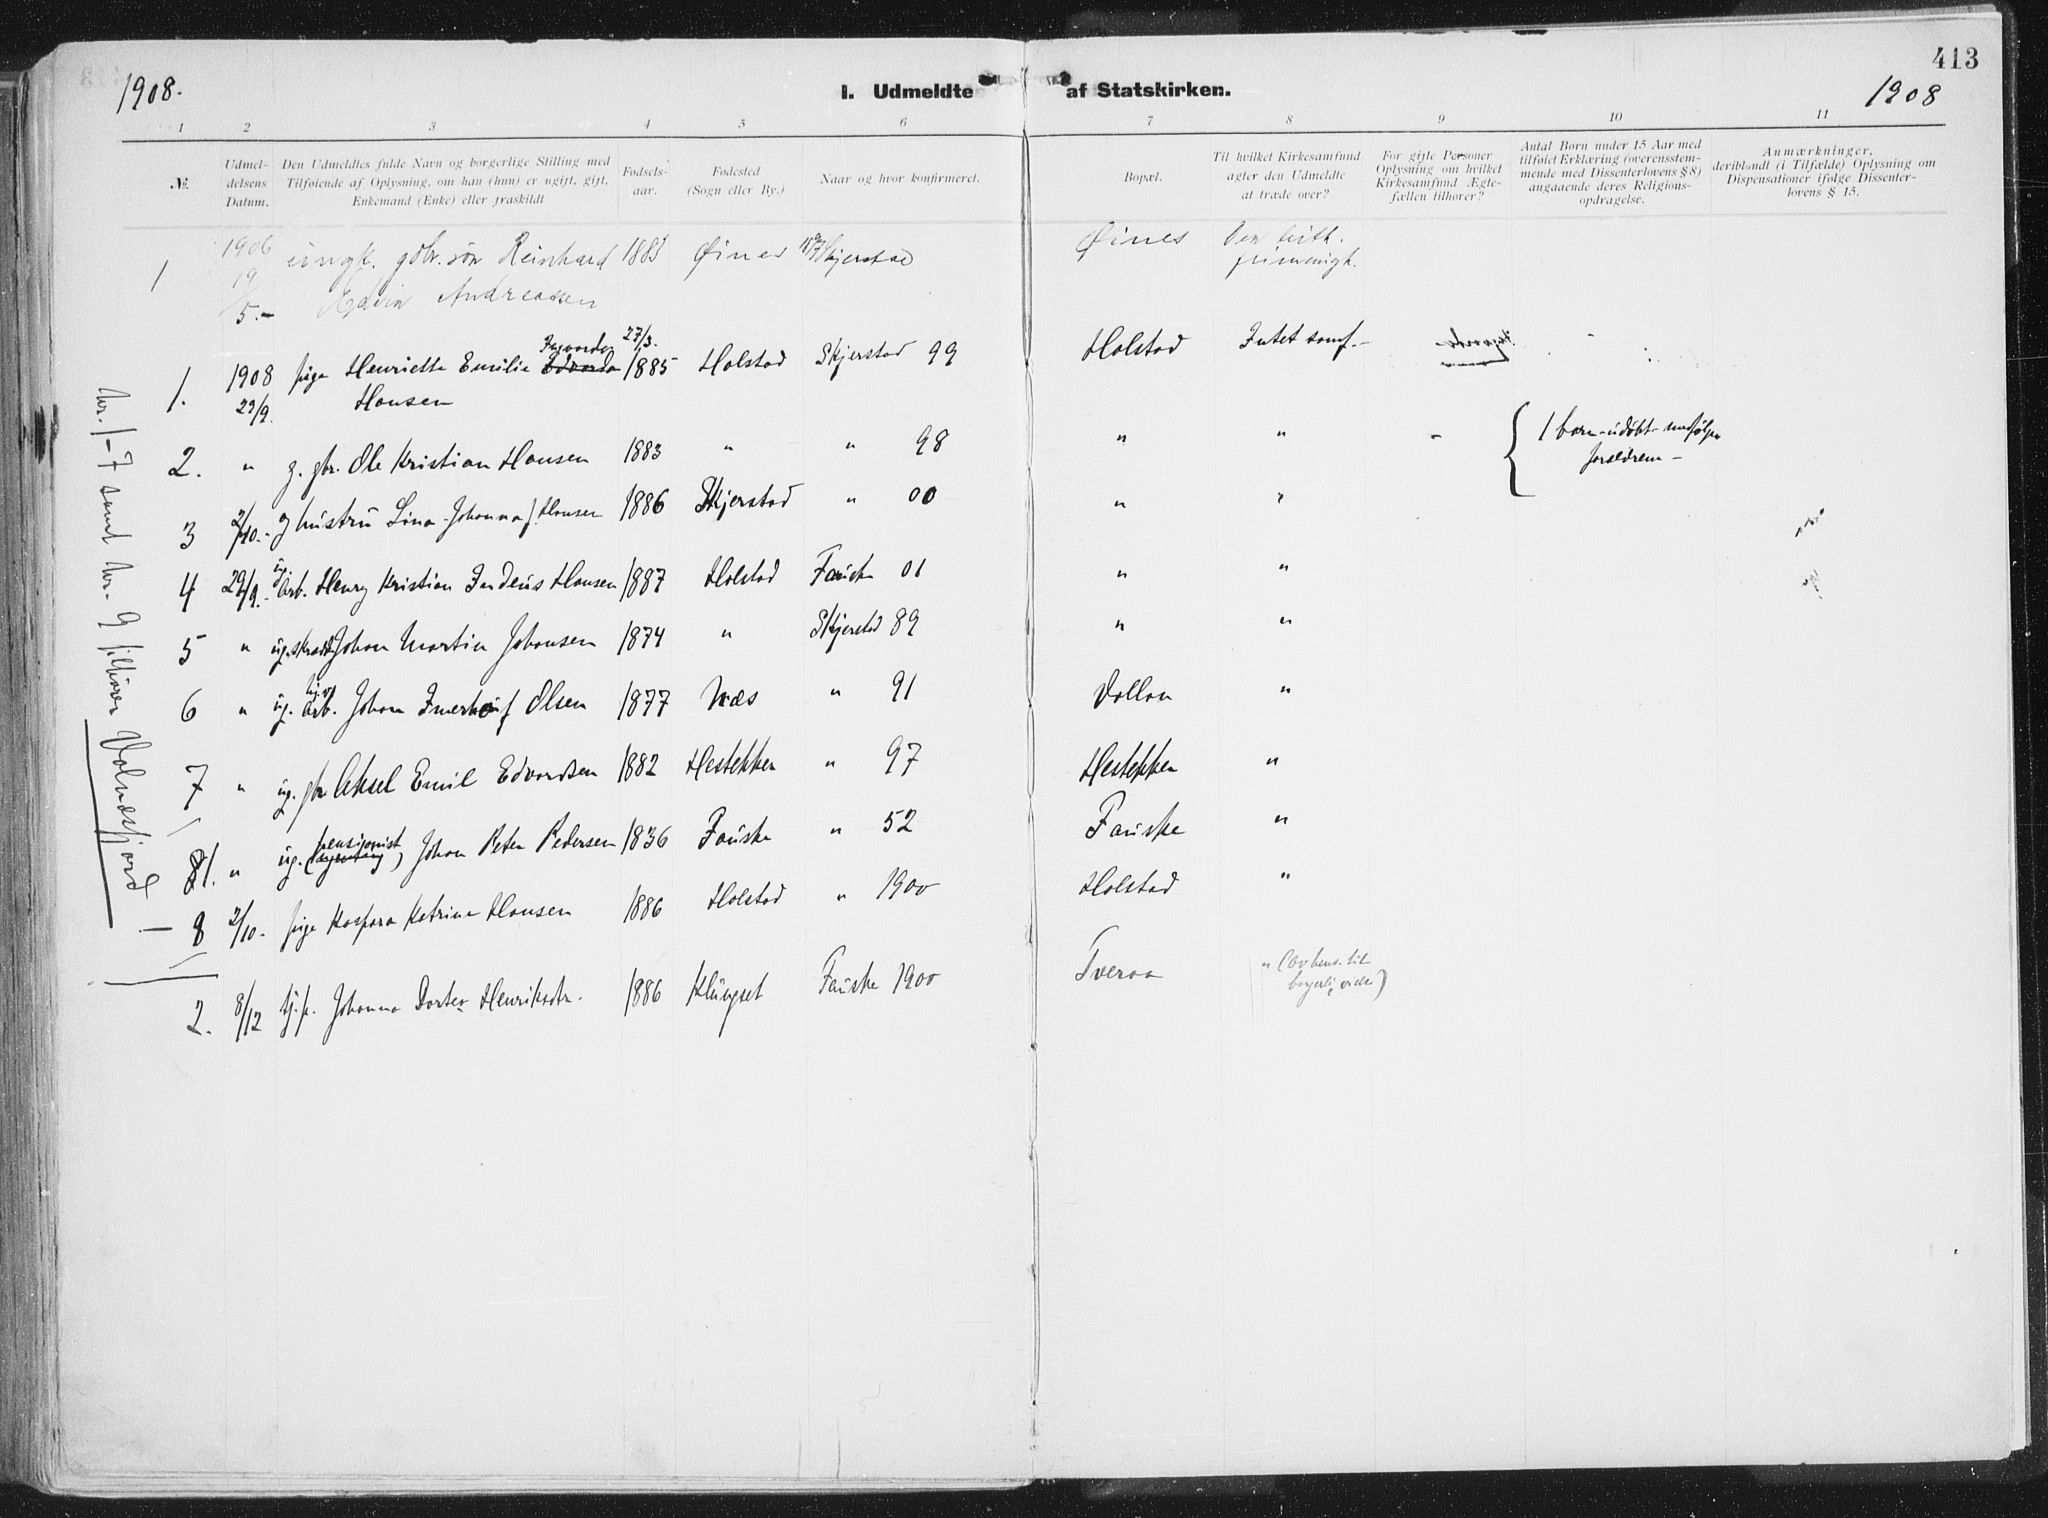 413
1908.
I. Udmeldte af Statskirken.
1908
1 2 3 4 5 6 7 8 9 10 11
№.
Udmel-
delsens
Datum.
Den Udmeldtes fulde Navn og borgerlige Stilling med
Tilføiende af Oplysning, om han (hun) er ugift, gift,
Enkemand (Enke) eller fraskildt
Fødsels-
aar.
Fødested
(Sogn eller By.)
Naar og hvor konfirmeret.
Bopæl.
Til hvilket Kirkesamfund
agter den Udmeldte
at træde over?
For gifte Personer
Oplysning om hvilket
Kirkesamfund Ægte-
fællen tilhører?
Antal Børn under 15 Aar med
tilføiet Erklæring (overensstem-
mende med Dissenterlovens § 8)
angaaende deres Religions-
opdragelse.
Anmærkninger,
deriblandt (i Tilfælde) Oplysning om
Dispensationer ifølge Dissenter-
lovens § 15.
1 1906 ungk. gbr. søn Reinhard 188 Øines Skjerstad Øines Den luth.
19/5.- Edvin Andreassen frimenigh.
27/3.
1. 1908 pige Henriette Emilie Edvarda 1885 Holstad Skjerstad 99 Holstad Intet samf.-
29/9. Hansen
2. " g. gbr. Ole Kristian Hansen 1883 " " 98 " " - { 1 barn - udøbt - medfølger
forældrene -
3 2/10.- g hustru Lina Johanna f. Hansen 1886 Skjerstad " 00 " "
4 29/9.- ug. arb. Henry Kristian Hansen 1887 Holstad Fauske 01 " "
5 " ug. skrædd. Johan Martin Johansen 1874 " Skjerstad 89 " "
6 " ug. arb. Johan Olsen 1877 Næs " 91 Vollan "
7 " ug. gbr Aksel Emil Edvardsen 1882 Hestekker " 97 Hestekker "
pensionist
81. " ug. Johan Peter Pedersen 1836 Fauske " 52 Fauske "
8 2/10- pige Kaspara Katrine Hansen 1886 Holstad " 1900 Holstad "
2. 8/12 tj. p. Johanna Dortea Henriksdtr. 1886 Klungset Fauske 1900 Tveraa " (Lovbens. til
borgerlig vielse)
Nr. 1-7 samt nr. 9 tilhører Valnesfjord